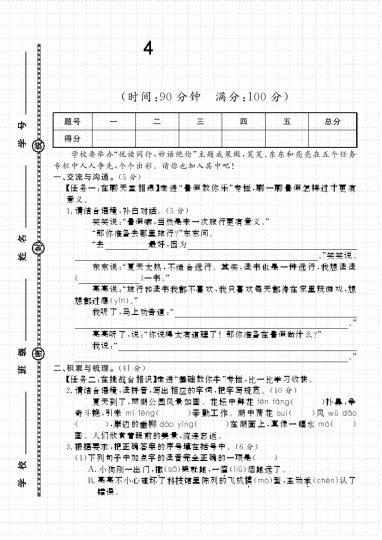 4
(时间:90分钟 满分:100分)
题号 一 二 三 四 五 总分
得分
学校要举办“悦读同行,妙语绝伦”主题成果展,笑笑、东东和亮亮在五个任务
专栏中人人争先,个个出彩。请你也加入其中吧!
一、交流与沟通。(5分)
【任务一:在聊天室相遇】走进“暑假数你乐”专栏,聊一聊暑假怎样过才更有
意义。
1.请结合语境,补白对话。(5分)
笑笑说:“暑假嘛,当然是来一次旅行更有意义。”
“那你准备去哪里旅行?”东东问。
“去 最好,因为
。”笑笑说。
东东说:“夏天太热,不适合远行。其实,读书也是一种远行,我想读读
《 》一书。”
亮亮说:“旅行和读书我都不喜欢,我只喜欢每天都待在家里玩游戏,想
想都过瘾(yǐn)。”
我听了,马上劝告道:“
。”
亮亮听了,说:“你说得太有道理了!那你准备在暑假做什么?”
我说:“
。”
二、积累与梳理。(41分)
【任务二:在挑战台相识】走进“基础数你牛”专栏,比一比学习收获。
2.请结合语境,读拼音,写出相应的字词,把字写规范。(10分)
夏天到了,丽湖公园风景如画。花坛中鲜花 ( )扑鼻,争
奇斗艳,引来 mì fēng( )辛勤工作。湖中荷花 suí( )风 wǔ dǎo
( ),岸边的垂柳 dào yìng( )在湖面上,真像一幅水 mò( )
画。人们欣赏着眼前的美景,流连忘返。
3.根据要求,把正确答案的序号填在括号中。(6分)
(1)下列句子中加点字的读音完全正确的一项是( )
A.小狗刚一出门,撒(sā)腿就跑,一溜(liū)烟跑远了。
B.亮亮不小心碰坏了科技馆里陈列的飞机模(mó)型,主动承(chén)认了
错误。
学校 班级 姓名 学号